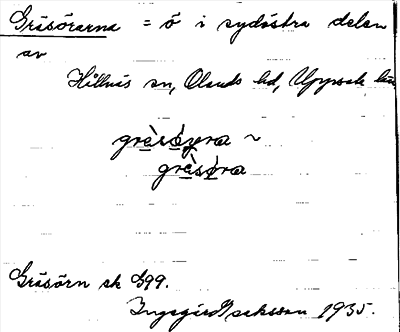 Gräsörarna = ö i sydöstra delen
av
Hållnäs sn, Olands hd, Uppsala län
grä̀sǿyra ~
grä̀søra
Gräsörn ek E99.
Ingegärd Isaksson 1935.